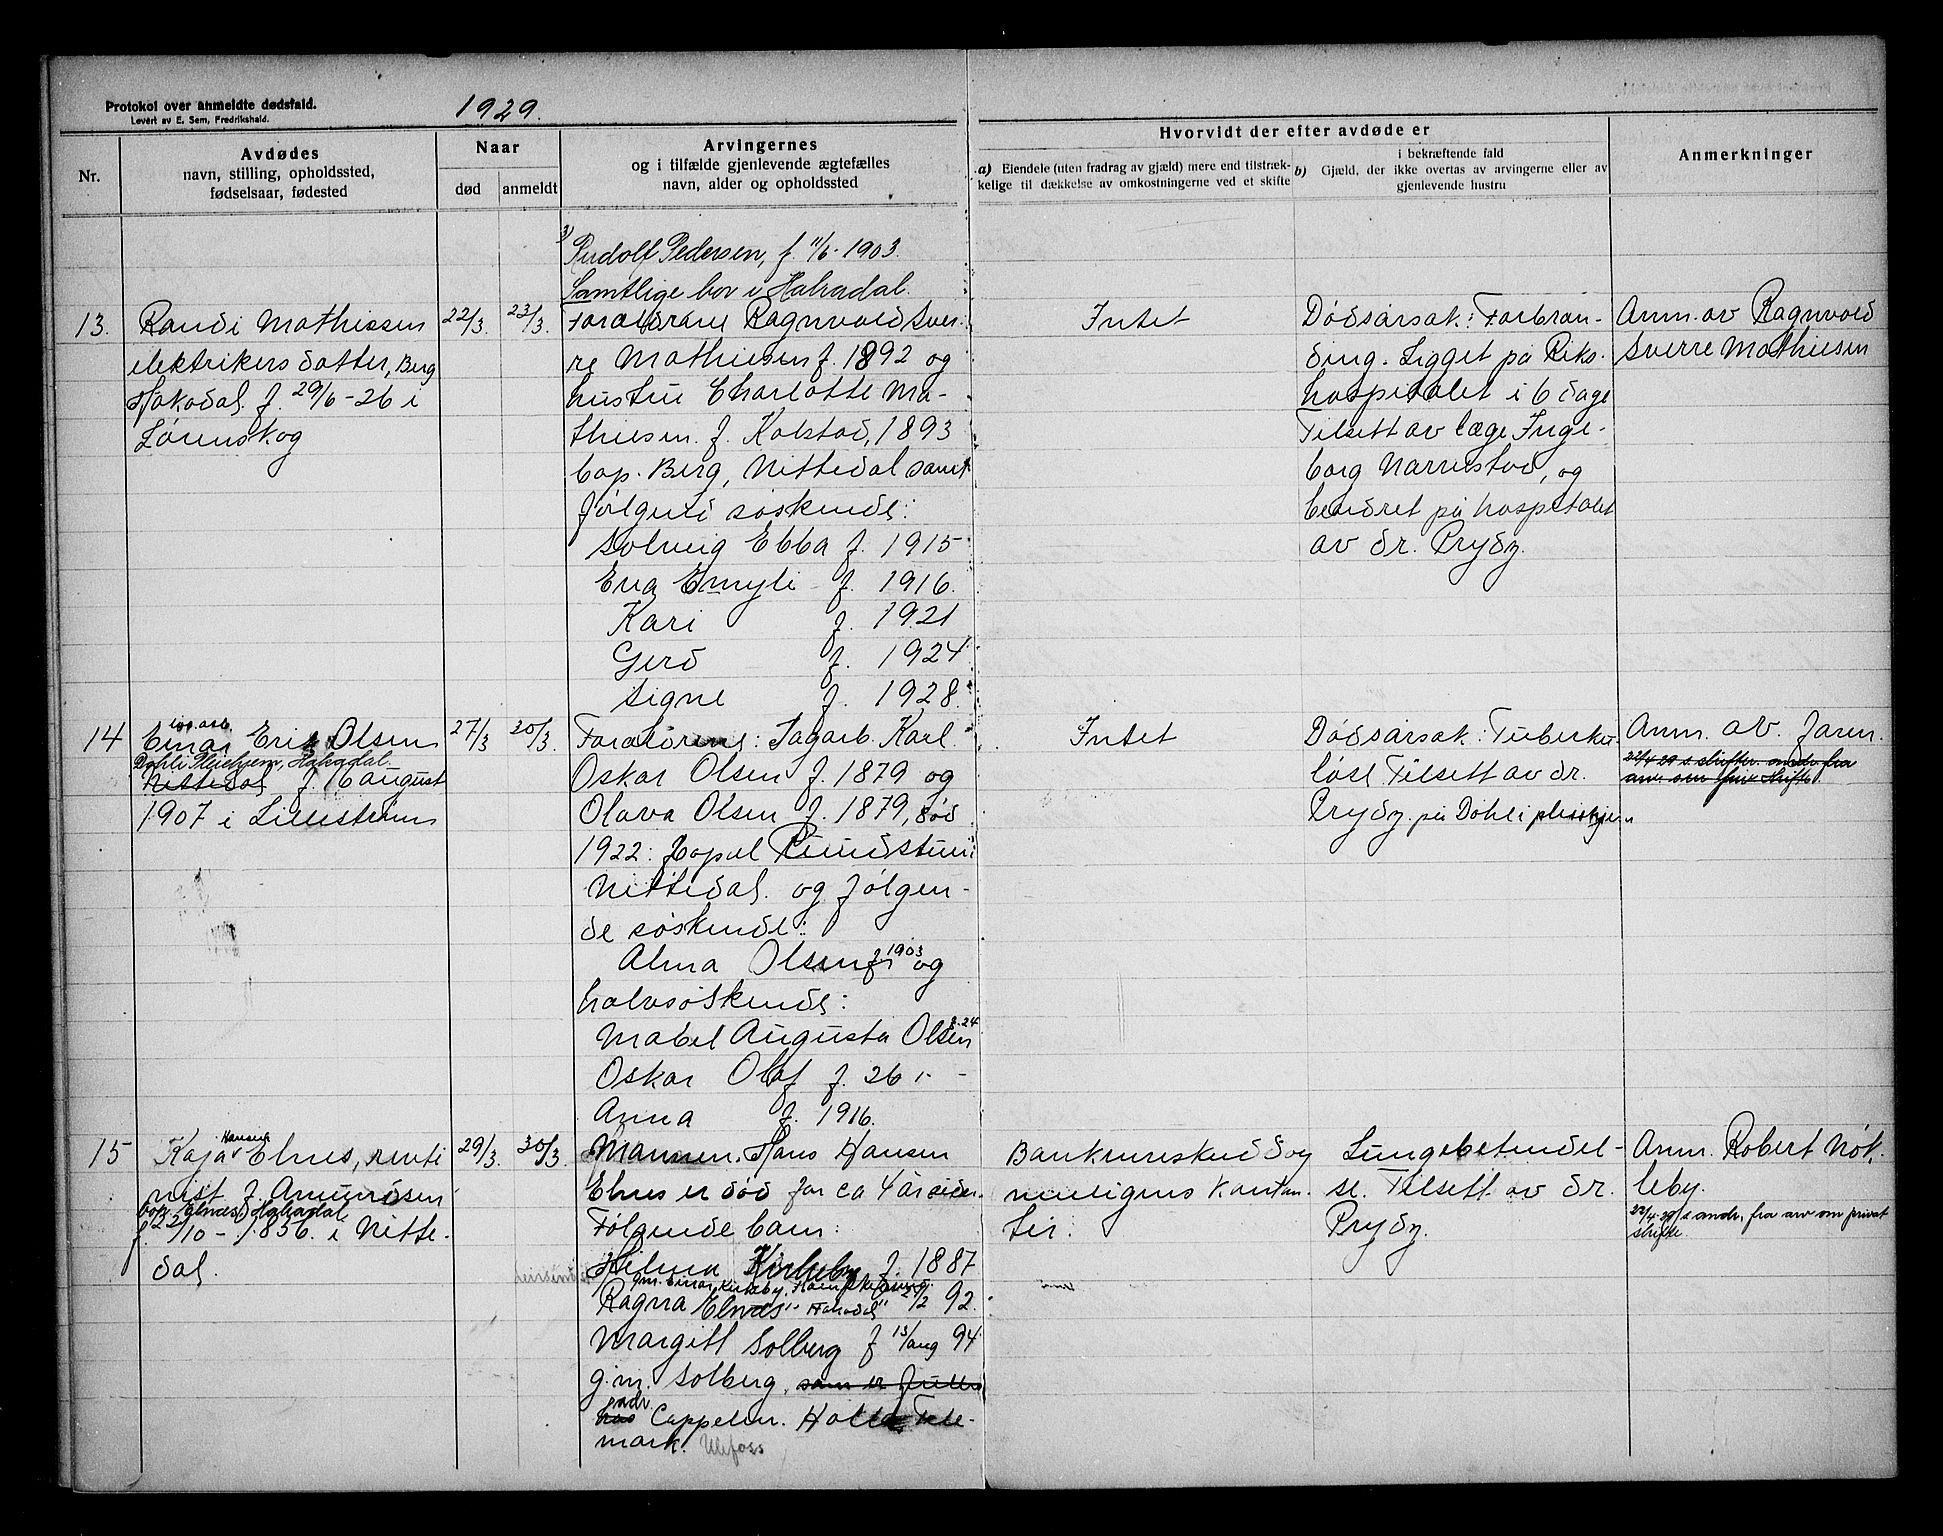 Protokol over anmeldte dødsfald.
Levert av E. Sem, Fredrikshald.
1929.
Nr.
Avdødes
navn, stilling, opholdssted,
fødselsaar, fødested
Naar
død
anmeldt
Arvingernes
og i tilfælde gjenlevende ægtefælles
navn, alder og opholdssted
Hvorvidt der efter avdøde er
a) Eiendele (uten fradrag av gjæld) mere end tilstræk-
kelige til dækkelse av omkostningerne ved et skifte
i bekræftende fald
b) Gjæld, der ikke overtas av arvingerne eller av
gjenlevende hustru
Anmerkninger
3) Rudolf Pedersen, f. 11/6-1903.
Samtlige bor i Hakadal.
13.
Randi Mathiesen
elektrikers datter, Berg
Hakadal f. 29/6-26 i
Lørenskog
22/3.
23/3.
Forældrene Ragnvald Sver-
re Mathiesen f. 1892 og
hustru Charlotte Ma-
thiesen f. Kolstad, 1893
bop. Berg, Nittedal samt
følgende søskende:
Solveig Ebba f. 1915
Eva Emyli f. 1916.
Kari f. 1921
Gerd f. 1924
Signe f. 1928.
Intet
Dødsårsak: Forbræn-
ding. Ligget på Riks-
hospitalet i 6 dage
Tilsett av læge Inge-
borg Narvestad, og
hospitalet
av dr. Prydz.
Anm. av Ragnvald
Sverre Mathiesen
14
Einar Erik Olsen
Døhli Pleiehjem, Hakadal.
Nittedal f. 6 august
1907 i Lillestrøm
27/3
30/3.
Forældrene: Sagarb. Karl
Oskar Olsen f. 1879 og
Olava Olsen f. 1879, død
1922: bopæl
Nittedal. og følgen-
de søskende:
Alma Olsen f. 1903 og
halvsøskende:
Mabel Augusta Olsen f. 24
Oskar Olaf f. 26
Anna f. 1916.
Intet
Dødsårsak: Tuberku-
lose Tilsett av dr.
Prydz. på Døhli pleiehjem
Anm. av faren.
15
Kaja Hansen Elnes, renti
nist f. Amundsen
bop. Elnes, Hakadal
f. 22/10-1856. i Nitte-
dal.
29/3.
30/3.
Mannen. Hans Hansen
Elnes er død for ca 4 år siden
Følgende barn:
Hilma Kirkeby f. 1887
gm. Einar Kirkeby,
Ragna Elnes Hakadal 92.
Margitt Solberg f 15/aug 94
g.m. Solberg, som er
Cappelen. Holla Tele-
mark. Ulefoss
Bankinnskudd og
muligens kontan-
ter.
Lungebetendel-
se. Tilsett av dr.
Prydz.
Anm. Robert Nøk-
leby.
22/4-29 s. andr. fra arv om privat
skifte.